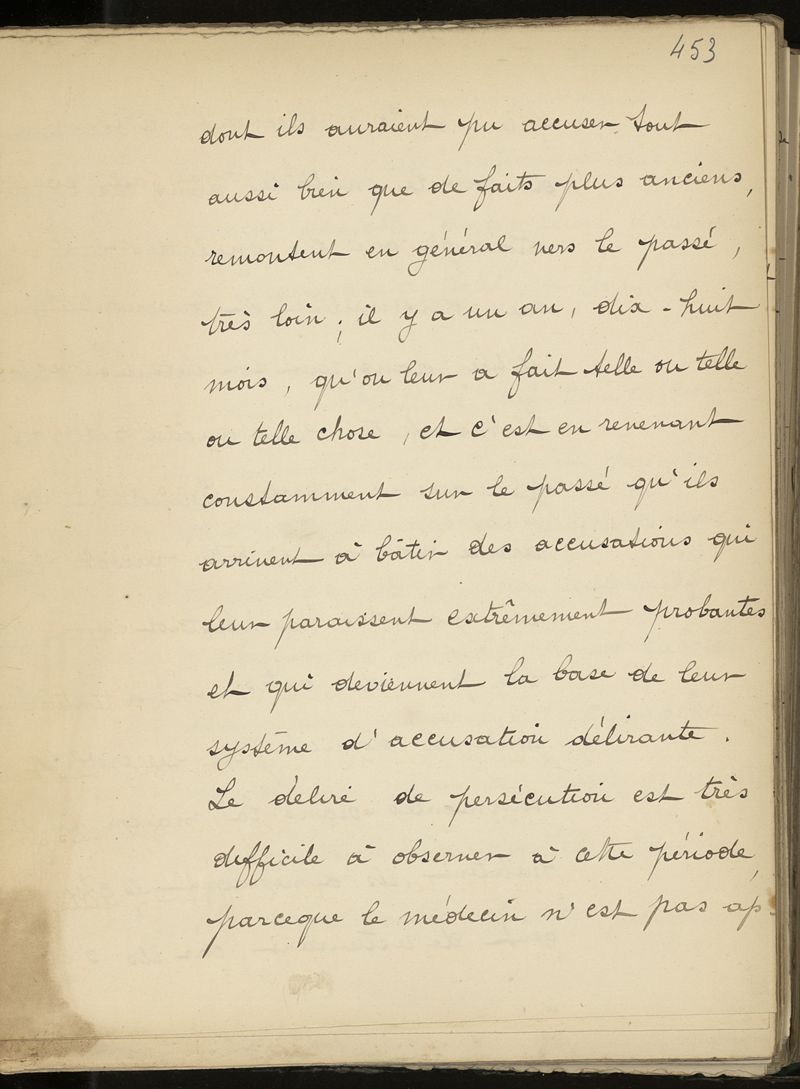 453
dont ils auraient pu accuser tout
aussi bien que de faits plus anciens,
remontent en général vers le passé,
très loin ; il y a un an, dix-huit
mois, qu'on leur a fait telle ou telle
ou telle chose, et c'est en revenant
constamment sur le passé qu'ils
arrivent à bâtir des accusations qui
leur paraissent extrêmement probantes
et qui deviennent la base de leur
système d'accusation délirante.
Le délire de persécution est très
difficile à observer à cette période,
parceque le médecin n'est pas ap-